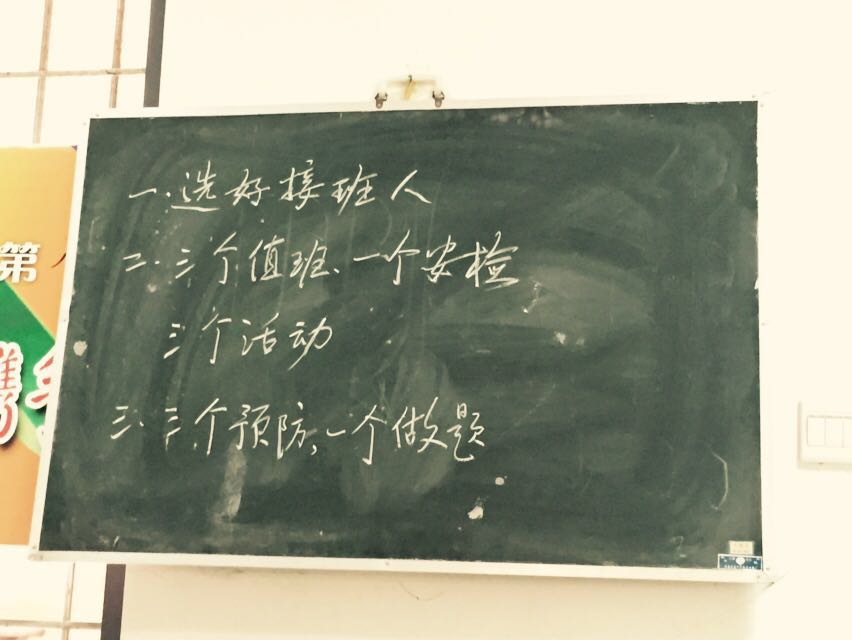 一.选好接班人
二.三个值班、一个安检
三个活动
三.三个预防,一个做题
第
携手